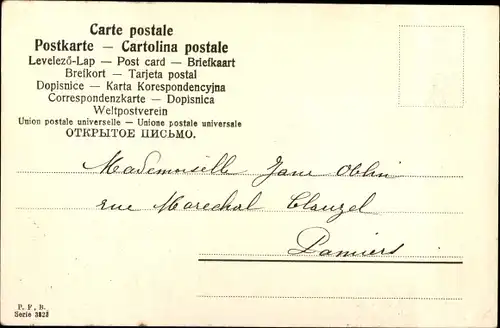 Carte postale
Postkarte — Cartolina postale
Levelező-Lap — Post card — Briefkaart
Brefkort — Tarjeta postal
Dopisnice — Karta Korespondencyjna
Correspondenzkarte — Dopisnica
Weltpostverein
Union postale universelle — Unione postale universale
ОТКРЫТОЕ ПИСЬМО.
Mademoiselle Jane Oblin
rue Marechal Clauzel
Pamiers
P. F. B.
Serie